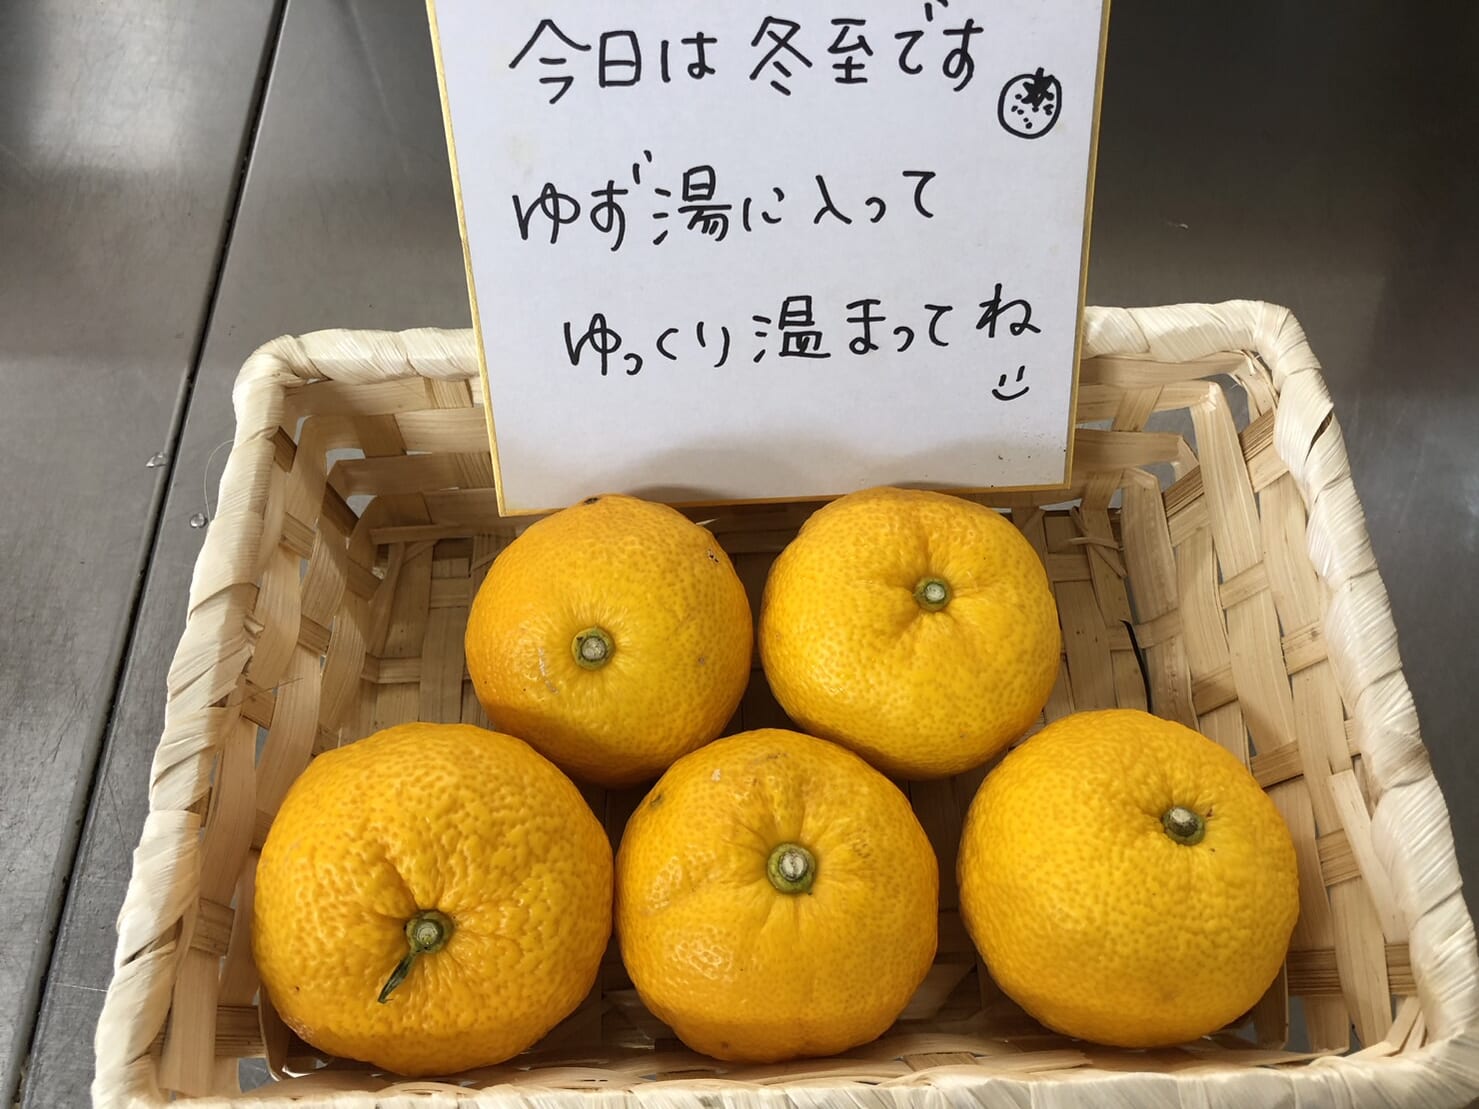 今日は冬至です
ゆず湯に入って
ゆっくり温まってね